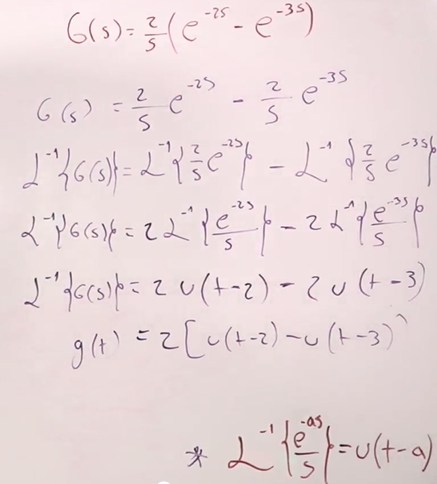 G(s) = 2/s (e^-2s - e^-3s)
G(s) = 2/s e^-2s - 2/s e^-3s
L^-1{G(s)} = L^-1{2/s e^-2s} - L^-1{2/s e^-3s}
L^-1{G(s)} = 2 L^-1{e^-2s/s} - 2 L^-1{e^-3s/s}
L^-1{G(s)} = 2 u(t-2) - 2 u(t-3)
g(t) = 2[u(t-2) - u(t-3)
* L^-1{e^-as/s} = u(t-a)